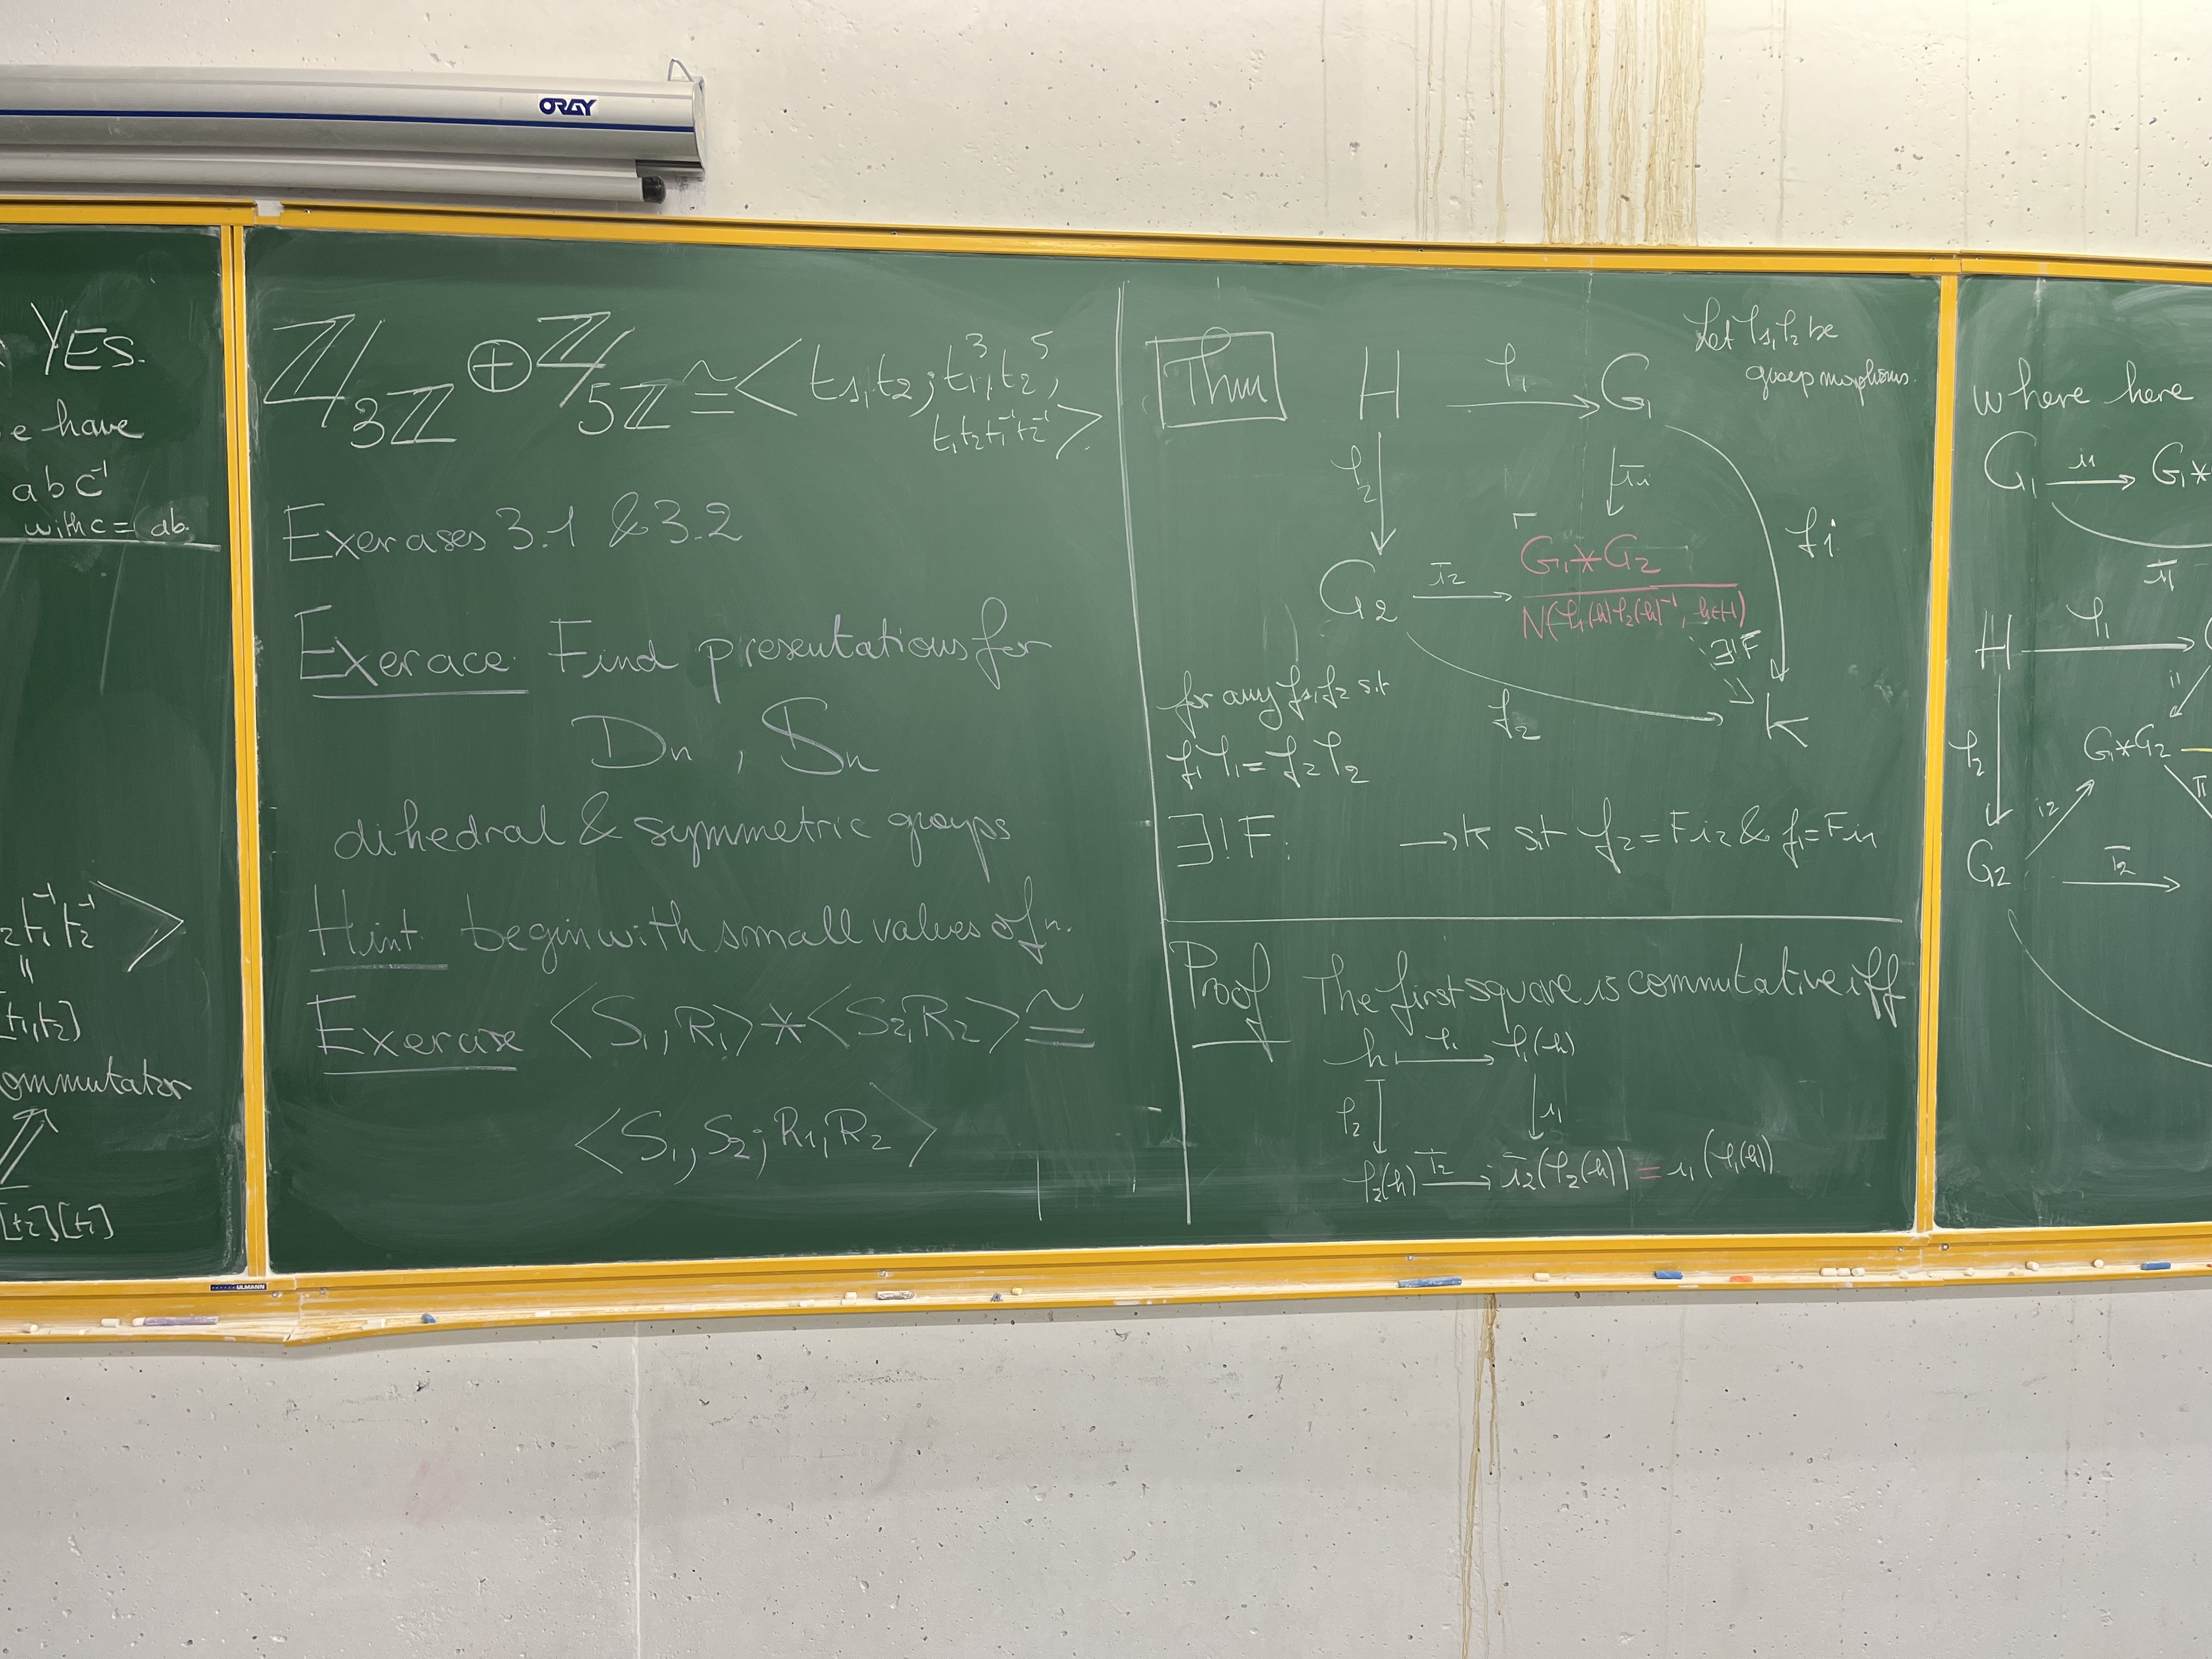 ORAY
YES.
e have
abc⁻¹
with c = ab.
₂t₁⁻¹t₂⁻¹ >
=
[t₁,t₂]
ommutator
[t₂][t₁]
ULMANN
ℤ/3ℤ ⊕ ℤ/5ℤ ≅ < t₁,t₂; t₁³, t₂⁵,
t₁t₂t₁⁻¹t₂⁻¹ >.
Exercises 3.1 & 3.2
Exercice. Find presentations for
Dₙ , Sₙ
dihedral & symmetric groups
Hint: begin with small values of n.
Exercise <S₁,R₁> * <S₂,R₂> ≅
<S₁,S₂; R₁,R₂>
Let φ₁,φ₂ be
group morphisms.
Thm H φ₁ → G₁
φ₂ ↓ ↓ ī₁
f₁
G₂ ī₂ → G₁*G₂
N(φ₁(h)φ₂(h)⁻¹, h∈H)
∃!F
for any f₁,f₂ s.t
f₂ K
f₁φ₁ = f₂φ₂
∃!F: → K st f₂ = Fi₂ & f₁ = Fi₁
Proof The first square is commutative iff
h φ₁ → φ₁(h)
φ₂ ↓ ↓ i₁
φ₂(h) ī₂ → ī₂(φ₂(h)) = i₁(φ₁(h))
where here
G₁ i₁ → G₁*
ī₁
H φ₁ →
i₁
φ₂ G₁*G₂
i₂
G₂ ī₂ →